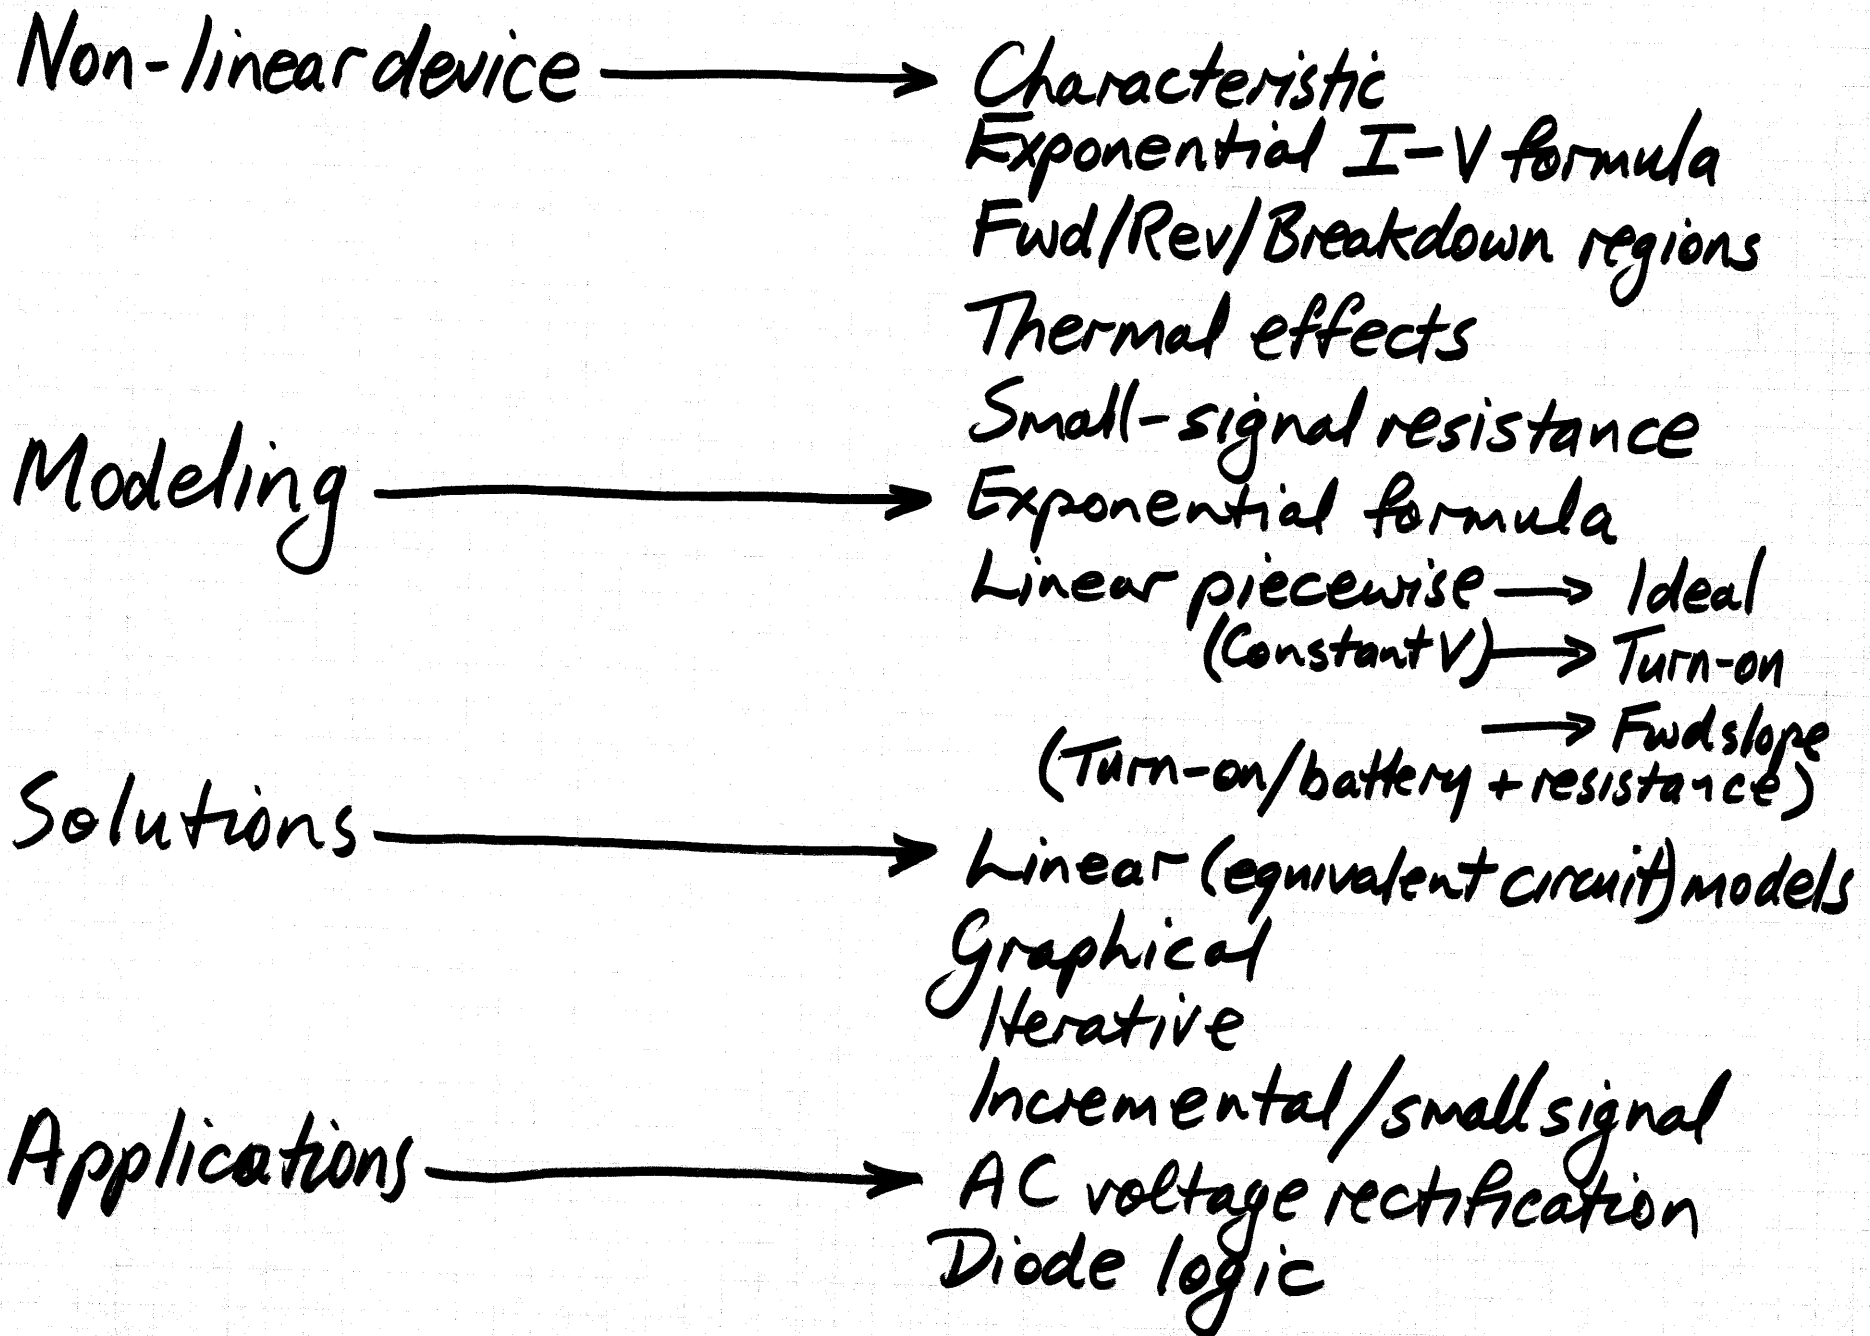 Non-linear device → Characteristic
Exponential I-V formula
Fwd/Rev/Breakdown regions
Thermal effects
Small-signal resistance
Modeling → Exponential formula
Linear piecewise → Ideal
(Constant V) → Turn-on
→ Fwd slope
(Turn-on/battery + resistance)
Solutions → Linear (equivalent circuit) models
Graphical
Iterative
Incremental/small signal
Applications → AC voltage rectification
Diode logic